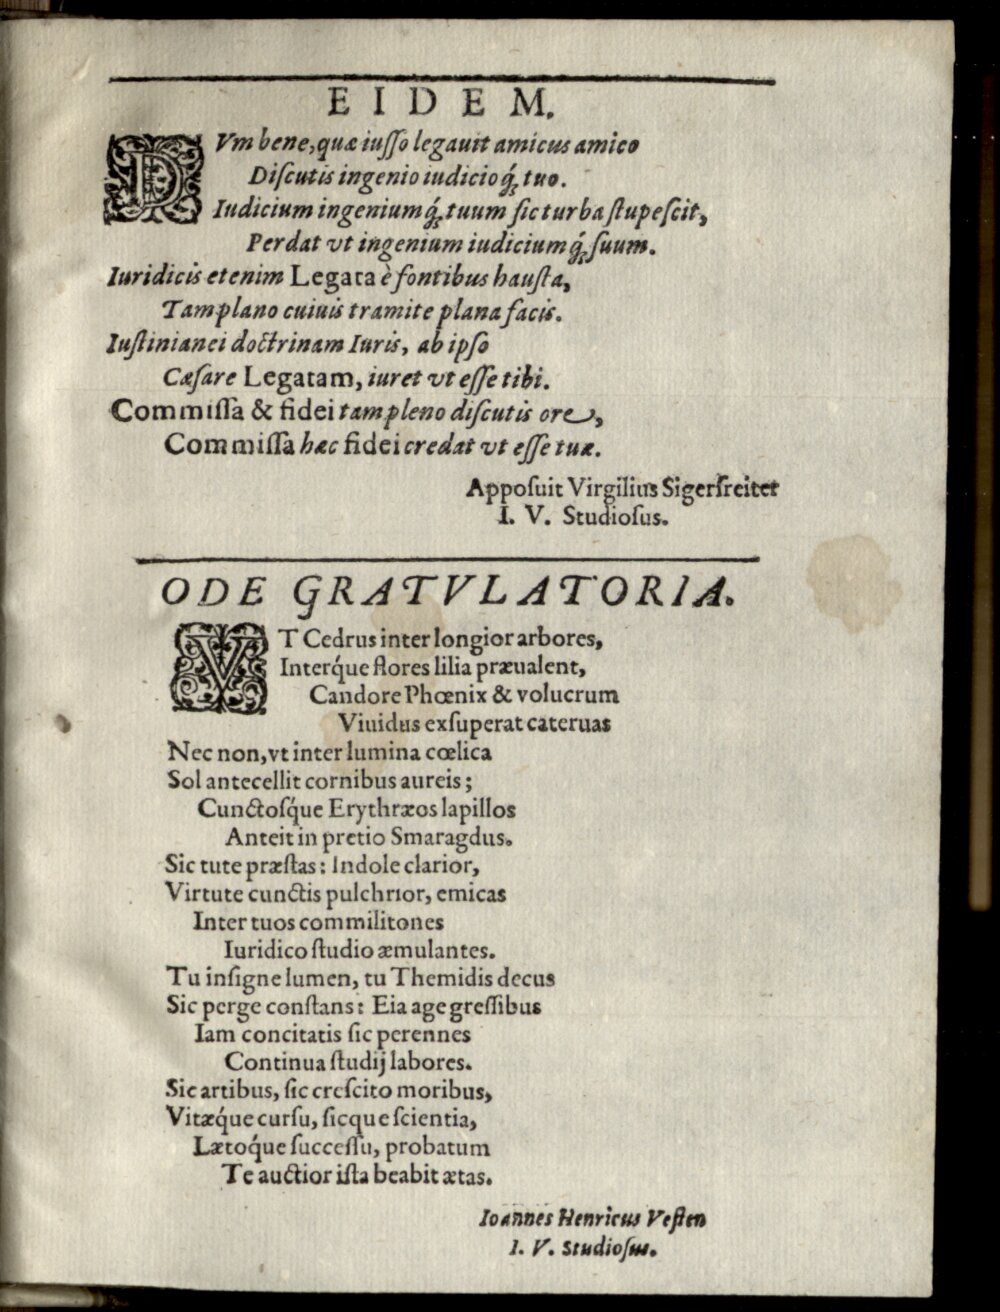 EIDEM.
DVm bene, quæ iusso legauit amicus amico
Discutis ingenio iudicioq́; tuo.
Iudicium ingeniumq́; tuum sic turba stupescit,
Perdat vt ingenium iudiciumq́; suum.
Iuridicis etenim Legata è fontibus hausta,
Tam plano cuiuis tramite plana facis.
Iustinianei doctrinam Iuris, ab ipso
Cæsare Legatam, iuret vt esse tibi.
Commissa & fidei tam pleno discutis ore,
Commissa hæc fidei credat vt esse tuæ.
Apposuit Virgilius Sigersreiter
I. V. Studiosus.
ODE GRATVLATORIA.
VT Cedrus inter longior arbores,
Interq́ue flores lilia præualent,
Candore Phœnix & volucrum
Viuidus exsuperat cateruas
Nec non, vt inter lumina cœlica
Sol antecellit cornibus aureis;
Cunctosq́ue Erythræos lapillos
Anteit in pretio Smaragdus.
Sic tute præstas: Indole clarior,
Virtute cunctis pulchrior, emicas
Inter tuos commilitones
Iuridico studio æmulantes.
Tu insigne lumen, tu Themidis decus
Sic perge constans: Eia age gressibus
Iam concitatis sic perennes
Continua studij labores.
Sic artibus, sic crescito moribus,
Vitæq́ue cursu, sicque scientia,
Lætoq́ue successu, probatum
Te auctior ista beabit ætas.
Ioannes Henricus Vesten
I. V. Studiosus.